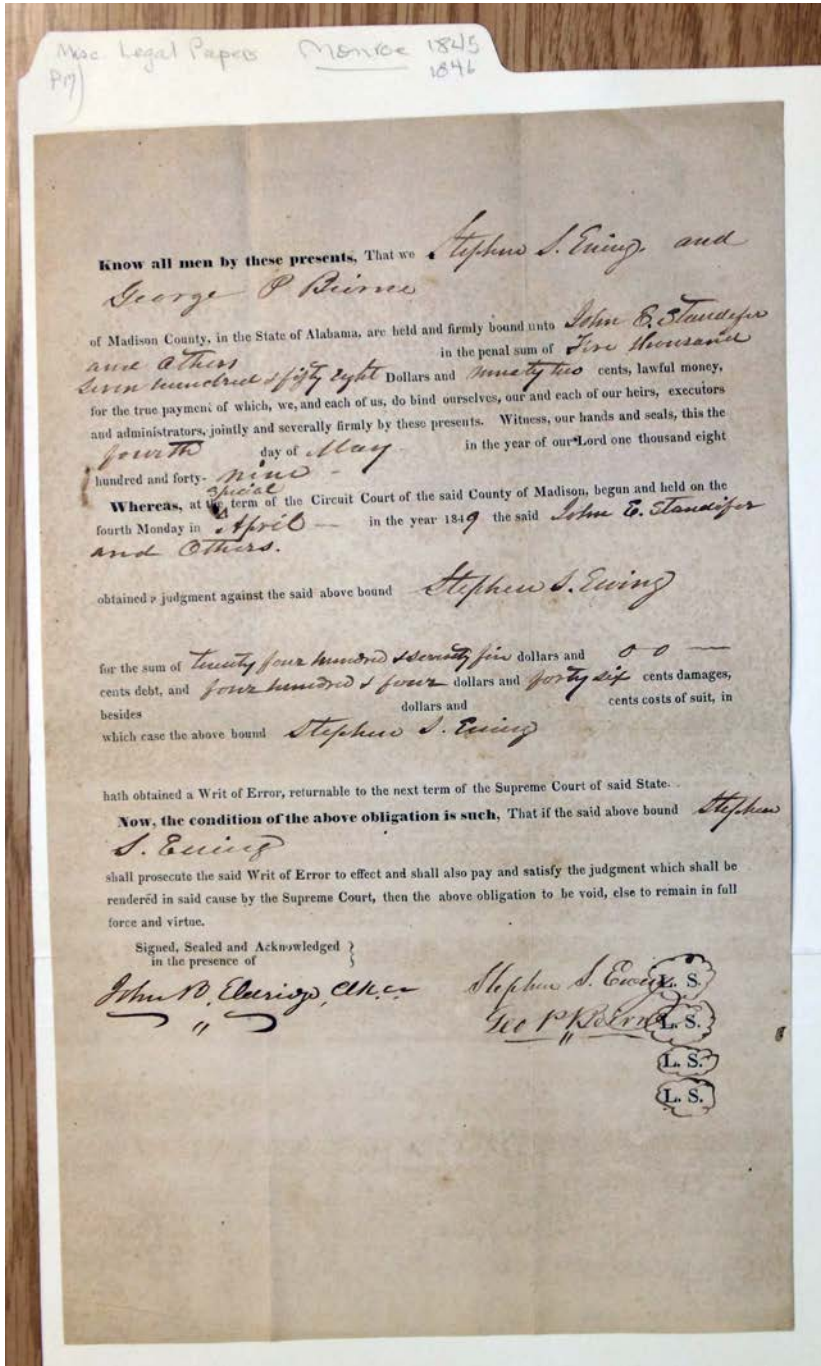 Misc Legal Papers Monroe 1845
1846
Know all men by these presents, That we Stephen S. Ewing and
George P Beirne
of Madison County, in the State of Alabama, are held and firmly bound unto John E. Standifer
and others in the penal sum of Five thousand
seven hundred & fifty eight Dollars and ninety two cents, lawful money,
for the true payment of which, we, and each of us, do bind ourselves, our and each of our heirs, executors
and administrators, jointly and severally firmly by these presents. Witness, our hands and seals, this the
fourth day of May in the year of our Lord one thousand eight
hundred and forty- nine -
special
Whereas, at the term of the Circuit Court of the said County of Madison, begun and held on the
fourth Monday in April — in the year 1849 the said John E. Standifer
and Others.
obtained a judgment against the said above bound Stephen S. Ewing
for the sum of twenty four hundred & seventy five dollars and 0 0 —
cents debt, and four hundred & four dollars and forty six cents damages,
besides dollars and cents costs of suit, in
which case the above bound Stephen S. Ewing
hath obtained a Writ of Error, returnable to the next term of the Supreme Court of said State.
Now, the condition of the above obligation is such, That if the said above bound Stephen
S. Ewing
shall prosecute the said Writ of Error to effect and shall also pay and satisfy the judgment which shall be
rendered in said cause by the Supreme Court, then the above obligation to be void, else to remain in full
force and virtue.
Signed, Sealed and Acknowledged }
in the presence of }
John B. Stephen S. Ewing L. S.
Geo P Beirne L. S.
L. S.
L. S.